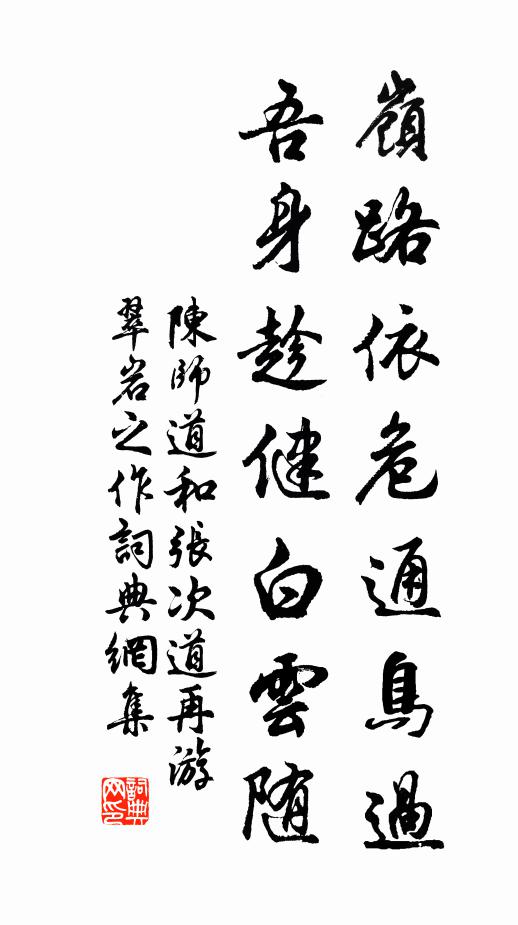 嶺路依危通鳥過
吾身趁健白雲随
陳師道和張次道再游
翠岩之作詞典網集
詞典
网印